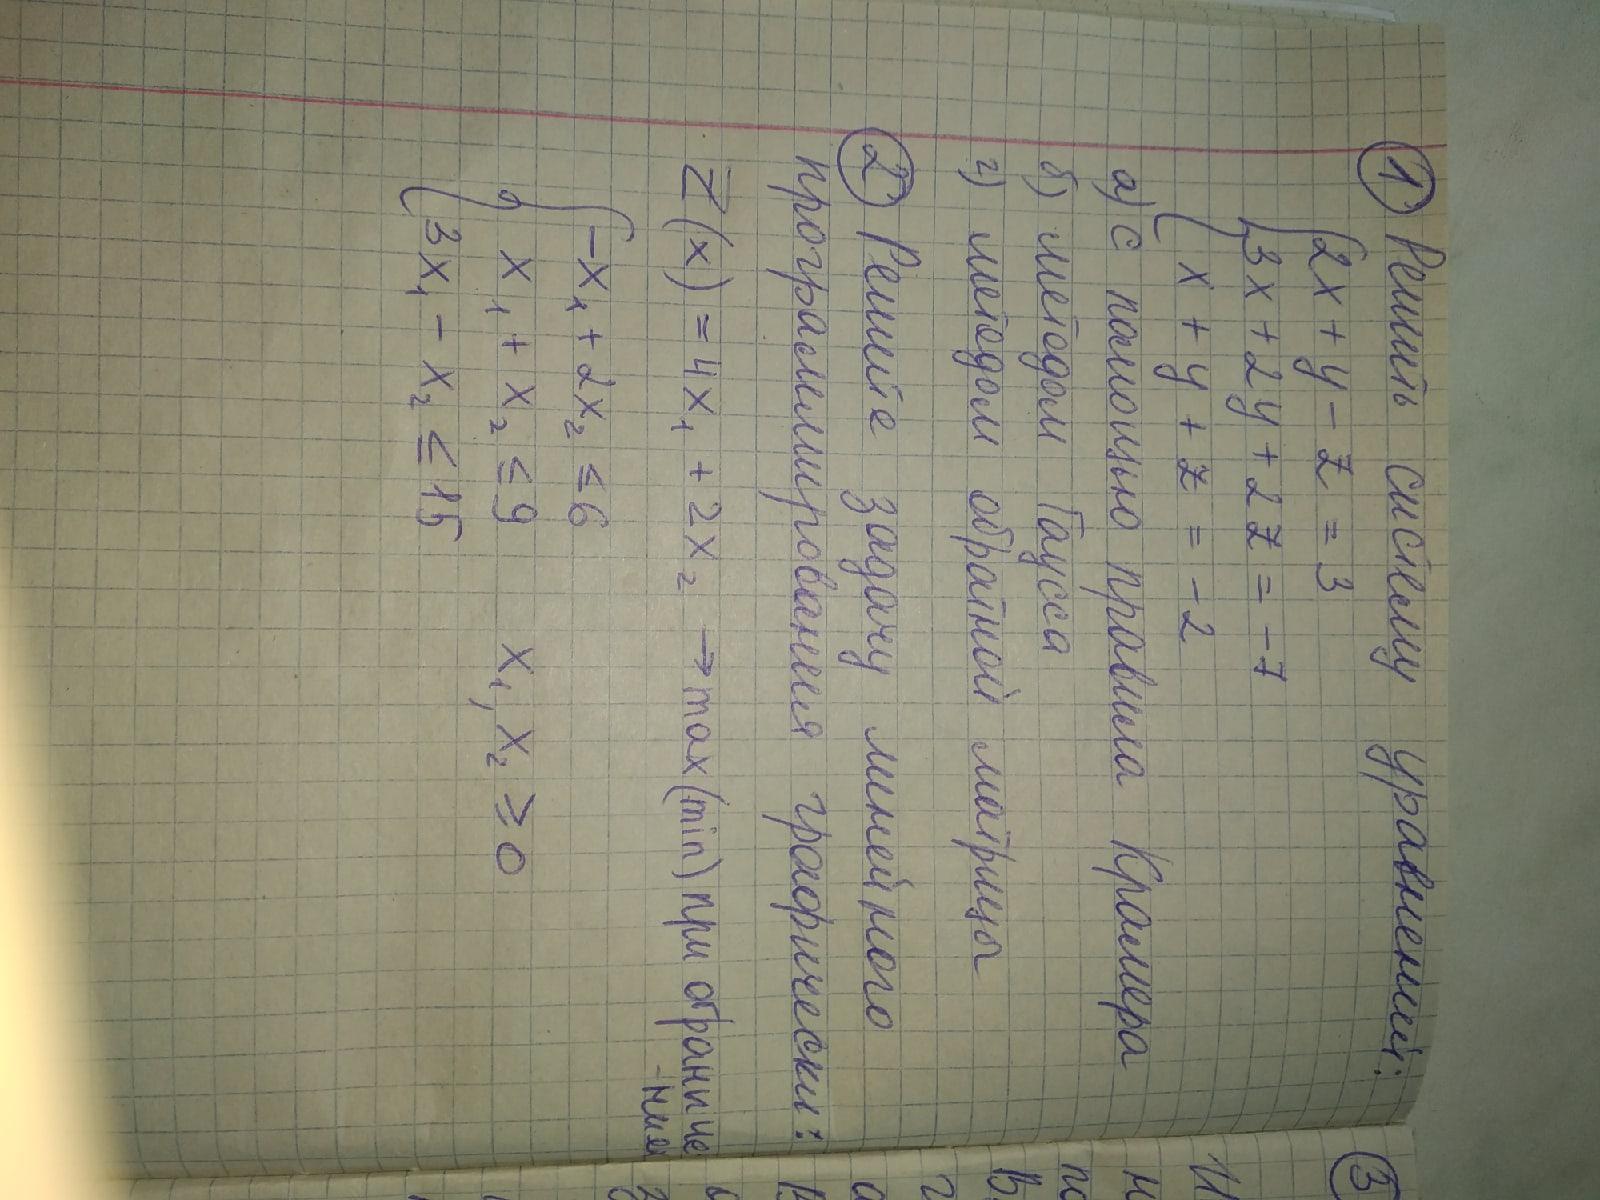 ① Решить систему уравнений:
{2x + y - z = 3
3x + 2y + 2z = -7
x + y + z = -2
а) с помощью правила Крамера
б) методом Гаусса
г) методом обратной матрицы
② Решите задачу линейного
программирования графически:
Z(x) = 4x₁ + 2x₂ → max(min) при ограниче
-ния
{-x₁ + 2x₂ ≤ 6
x₁ + x₂ ≤ 9 x₁, x₂ ≥ 0
3x₁ - x₂ ≤ 15
③